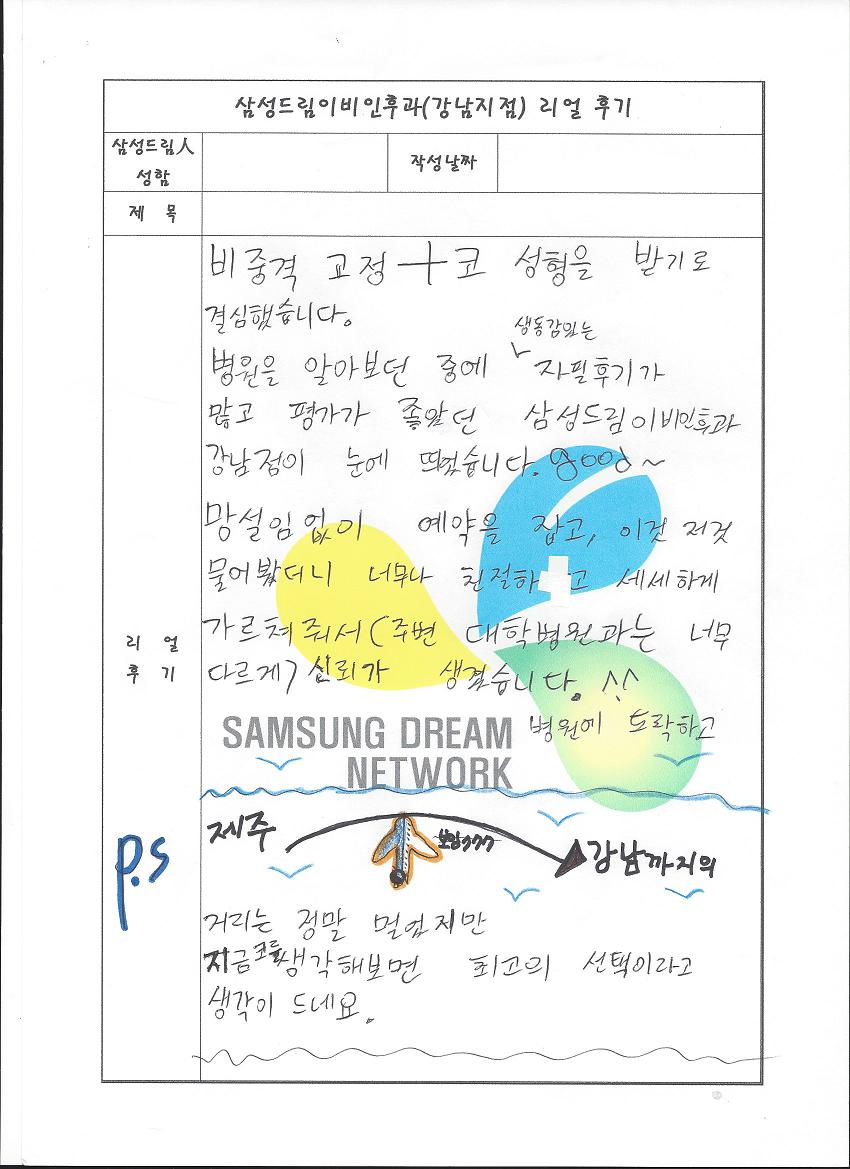 삼성드림이비인후과(강남지점) 리얼 후기
삼성드림人
성함
작성날짜
제 목
비중격 교정+코 성형을 받기로
결심했습니다.
생동감있는
병원을 알아보던 중에 자필후기가
많고 평가가 좋았던 삼성드림이비인후과
강남점이 눈에 띄었습니다. good~
망설임없이 예약을 잡고, 이것 저것
물어봤더니 너무나 친절하고 세세하게
가르쳐줘서(주변 대학병원과는 너무
리 얼
후 기
다르게) 신뢰가 생겼습니다. ^^
병원에 도착하고
SAMSUNG DREAM
NETWORK
p.s
제주
강남까지의
거리는 정말 멀었지만
지금 코를 생각해보면 최고의 선택이라고
생각이 드네요.